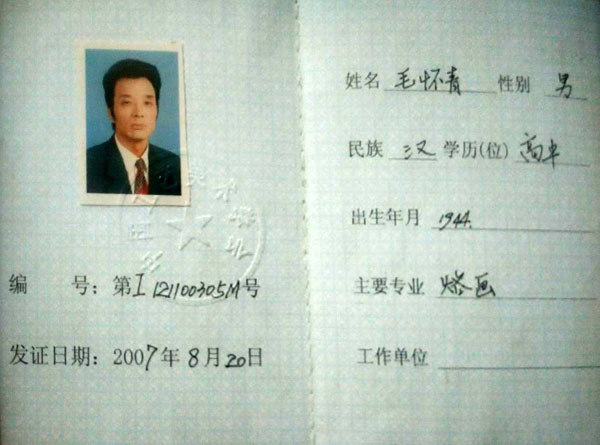 编 号：第I121100305M号
发证日期：2007年8月20日
姓名 毛怀青 性别 男
民族 汉 学历(位) 高中
出生年月 1944.
主要专业 烙画
工作单位